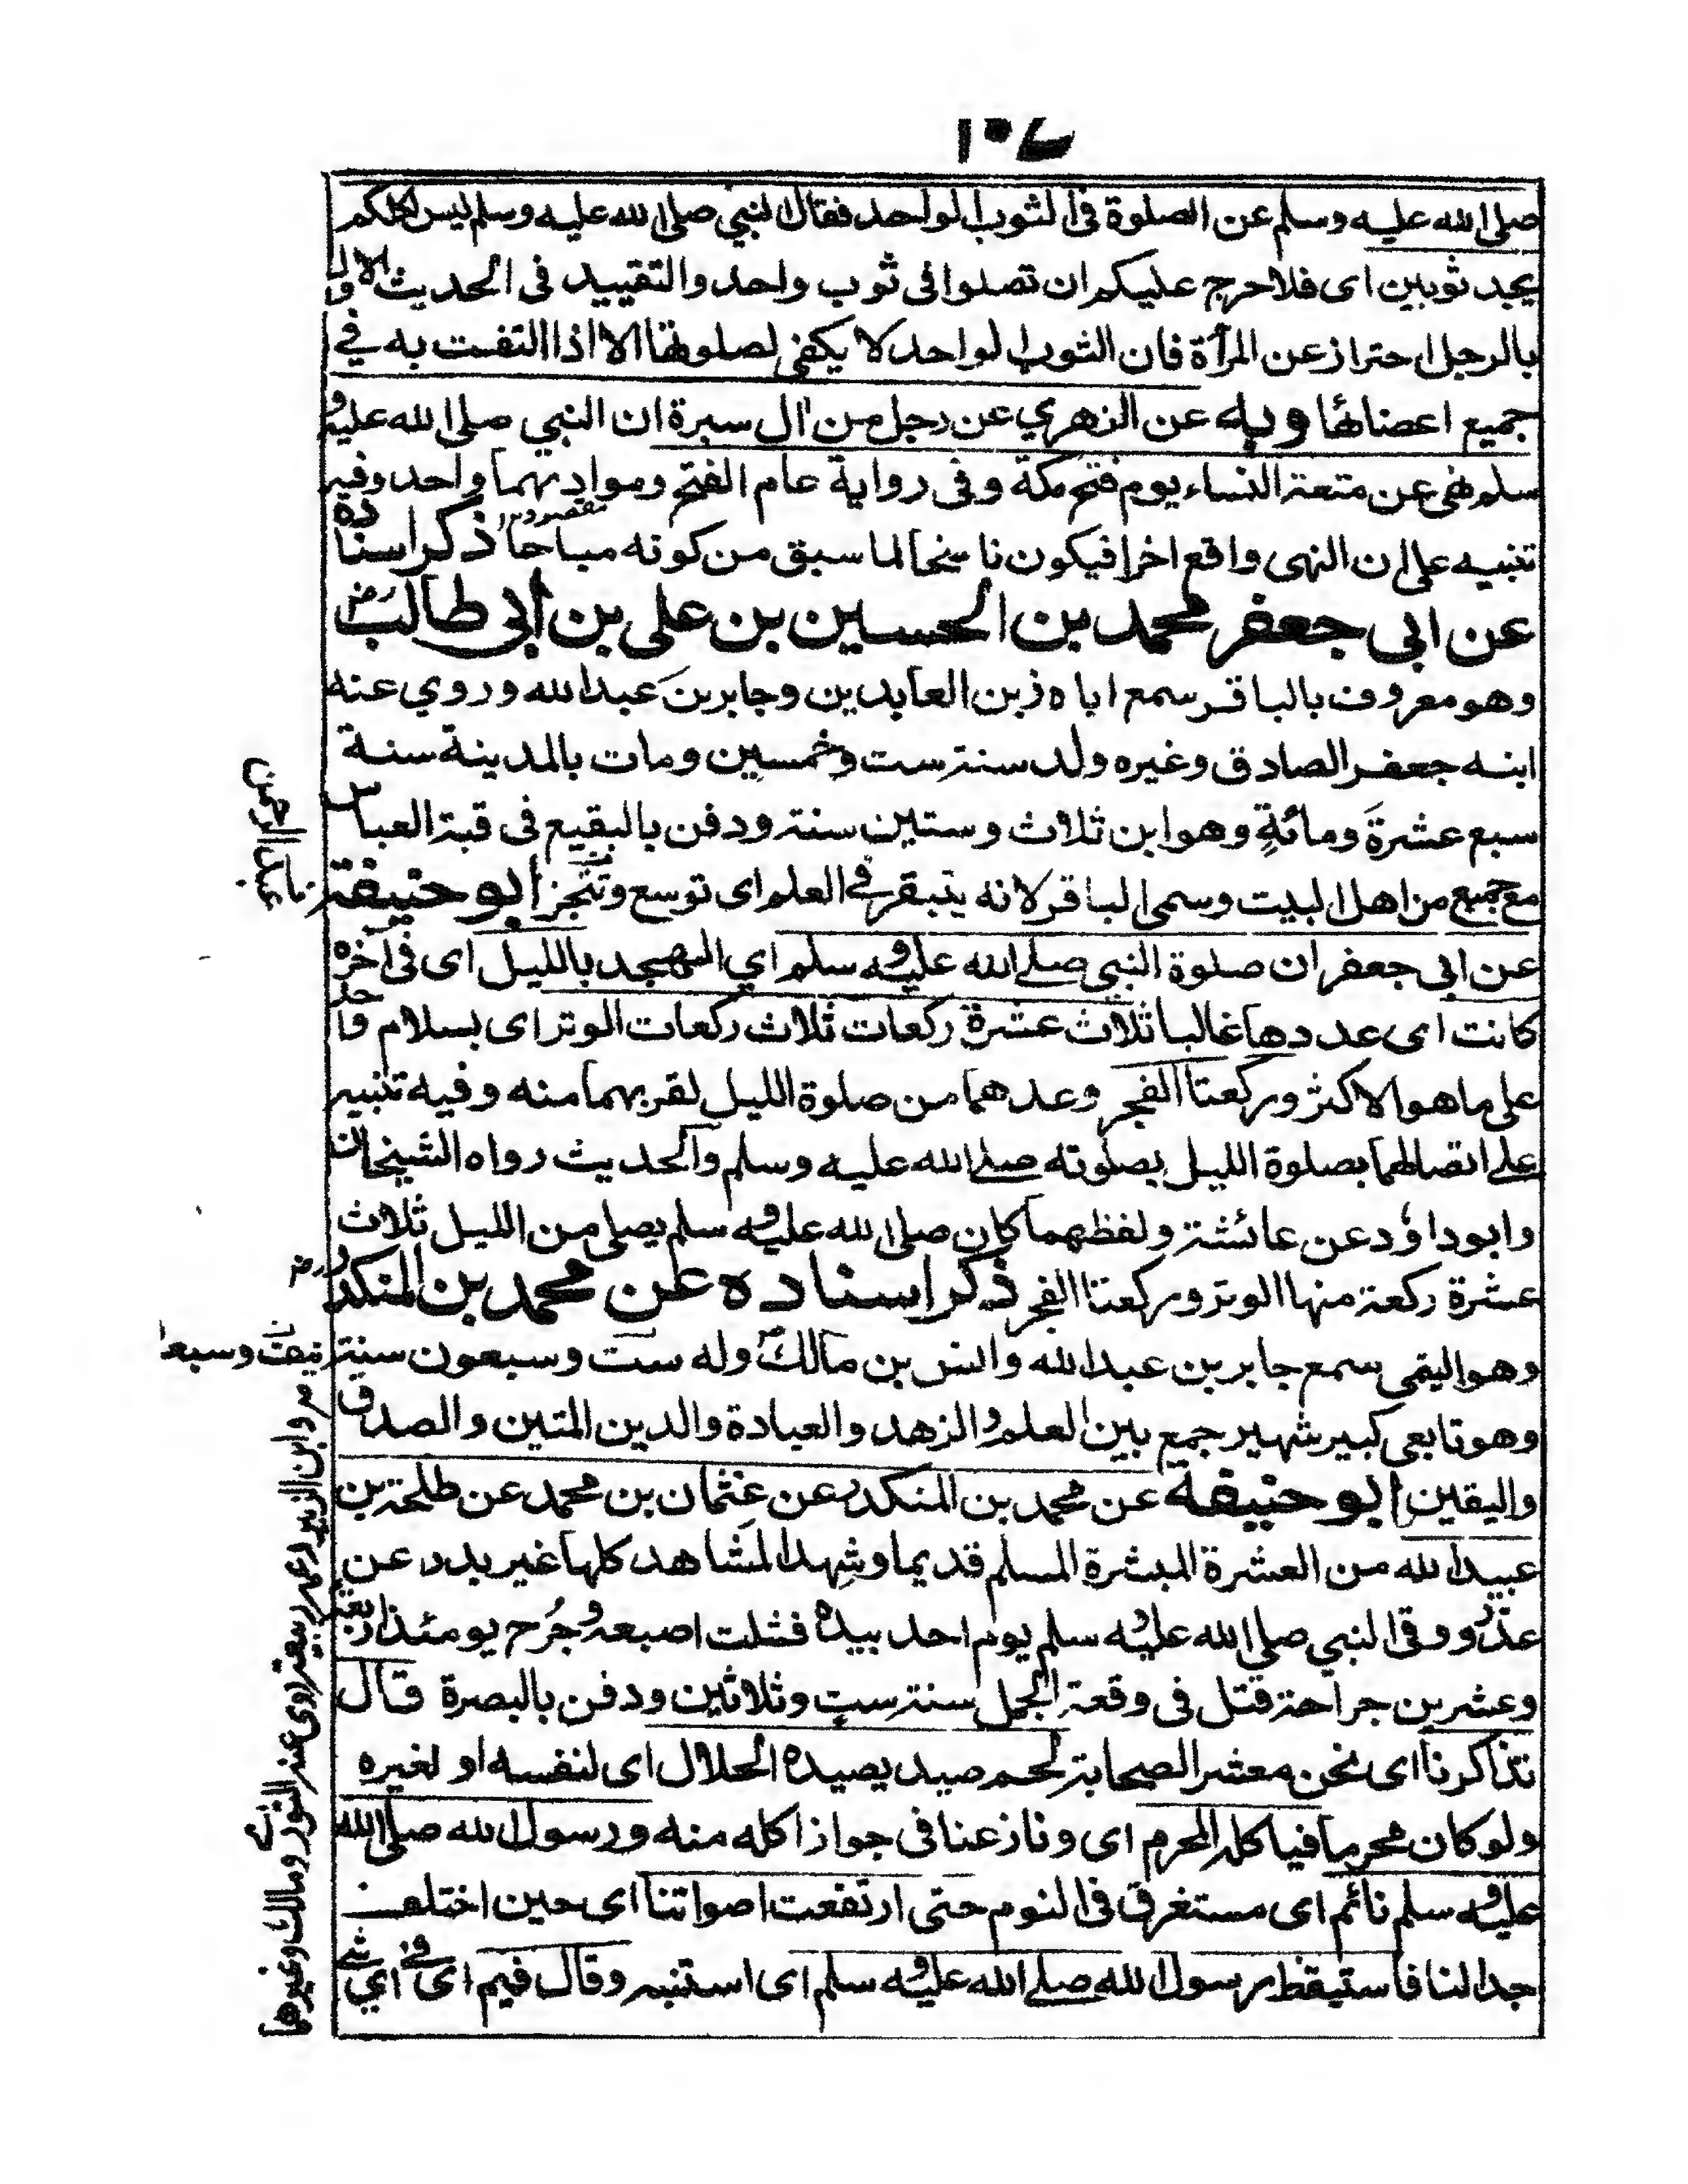 ١٠٦
صلى الله عليه وسلم عن الصلوة فى الثوب الواحد فقال النبي صلى الله عليه وسلم ليس لكلكم
يجد ثوبين اى فلا حرج عليكم ان تصلوا فى ثوب واحد والتقييد فى الحديث الاول
بالرجل احتراز عن المرأة فان الثوب الواحد لا يكفى لصلوتها الا اذا التفت به في
جميع اعضائها وبه عن الزهري عن رجل من ال سبرة ان النبي صلى الله عليه و
سلم نهى عن متعة النساء يوم فتح مكة وفى رواية عام الفتح ومواد بهما واحد وفيه
تنبيه على ان النهى واقع اخرا فيكون ناسخا لما سبق من كونه مباحا ذكر اسناده
عن ابى جعفر محمد بن الحسين بن على بن ابى طالب رض
وهو معروف بالباقر سمع اباه زين العابدين وجابر بن عبد الله وروي عنه
ابنه جعفر الصادق وغيره ولد سنة ست وخمسين ومات بالمدينة سنة
سبع عشرة ومائة وهو ابن ثلاث وستين سنة ودفن بالبقيع فى قبة العباس
مع جميع من اهل البيت وسمى الباقر لانه يتبقر فى العلم اى توسع وتبحر ابو حنيفة
عن ابى جعفر ان صلوة النبي صلى الله عليه وسلم اي التهجد بالليل اى فى اخره
كانت اى عددها غالبا ثلاث عشرة ركعات ثلاث ركعات الوتر اى بسلام واحد
على ما هو الاكثر وركعتا الفجر وعدهما من صلوة الليل لقربهما منه وفيه تنبيه
على اتصالهما بصلوة الليل بصلوته صلى الله عليه وسلم والحديث رواه الشيخان
وابو داؤد عن عائشة ولفظهما كان صلى الله عليه وسلم يصلى من الليل ثلاث
عشرة ركعة منها الوتر وركعتا الفجر ذكر اسناده عن محمد بن المنكدر رض
وهو اليتمى سمع جابر بن عبد الله وانس بن مالك وله ست وسبعون سنة
وهو تابعى كبير شهير جمع بين العلم والزهد والعبادة والدين المتين والصدق
واليقين ابو حنيفة عن محمد بن المنكدر عن عثمان بن محمد عن طلحة بن
عبيد الله من العشرة المبشرة المسلم قديما وشهد المشاهد كلها غير بدر عن
عذر ووقى النبي صلى الله عليه وسلم يوم احد بيده فشلت اصبعه وجرح يومئذ اربعة
وعشرين جراحة قتل فى وقعة الجمل سنة ست وثلاثين ودفن بالبصرة قال
تذاكرنا اى نحن معشر الصحابة لحم صيد يصيده الحلال اى لنفسه او لغيره
ولو كان محرما فياكله المحرم اى ونازعنا فى جواز اكله منه ورسول الله صلى الله
عليه وسلم نائم اى مستغرق فى النوم حتى ارتفعت اصواتنا اى حين اختلف
جدالنا فاستيقظ رسول الله صلى الله عليه وسلم اى استنبه وقال فيم اى فى اي شئ
وابن الزبير وعمه ربيعة روى عنه الثوري ومالك وغيرهما